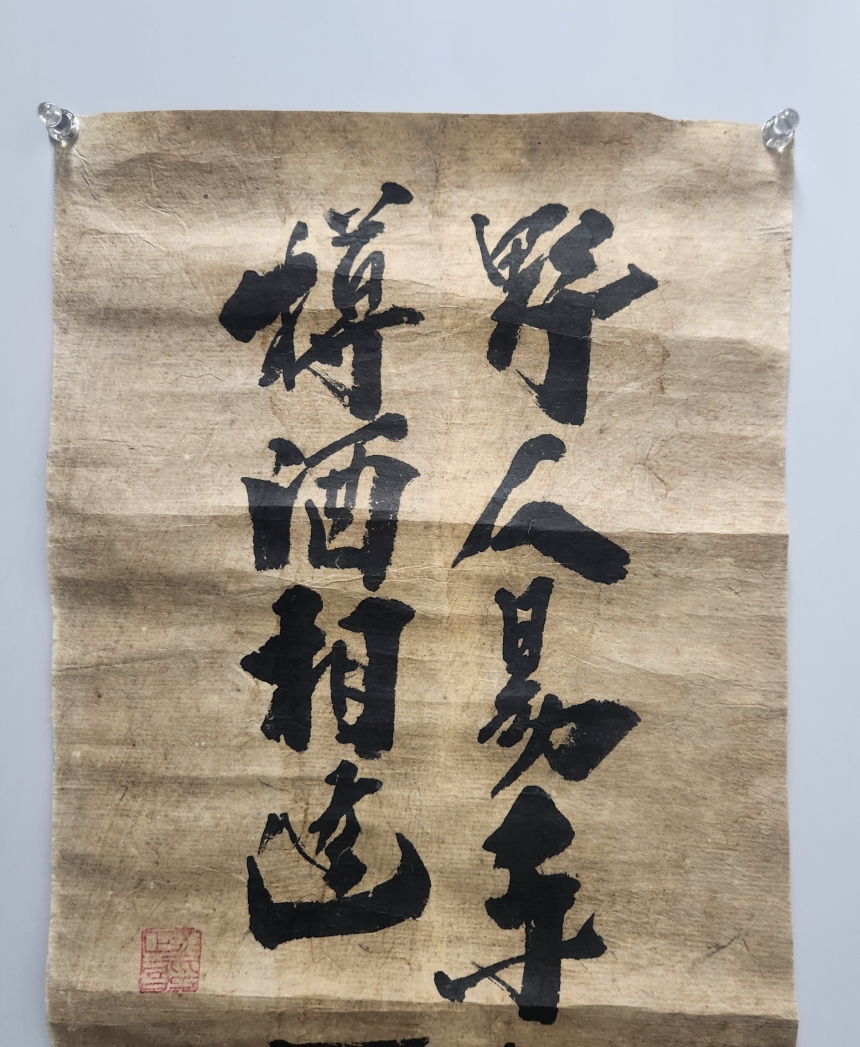 野人易年
樽酒相逢